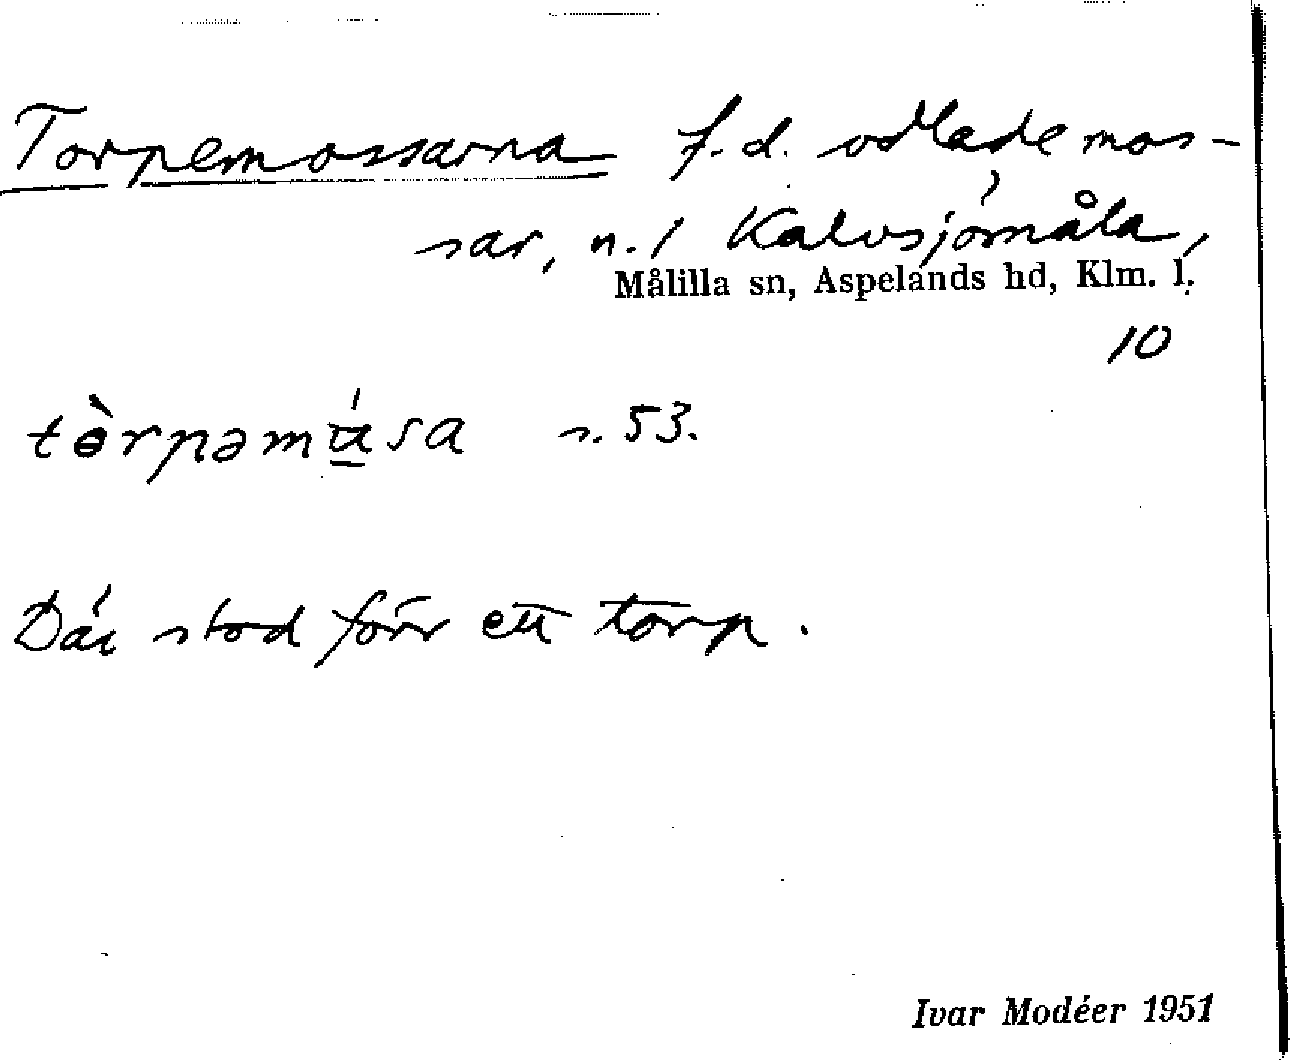 Torpemossarna f.d. odlade mos-
sar, n. / Kalvsjömåla,
Målilla sn, Aspelands hd, Klm. l.
10
tèrpəmɷ́sa s. 53.
Där stod förr ett torp.
Ivar Modéer 1951